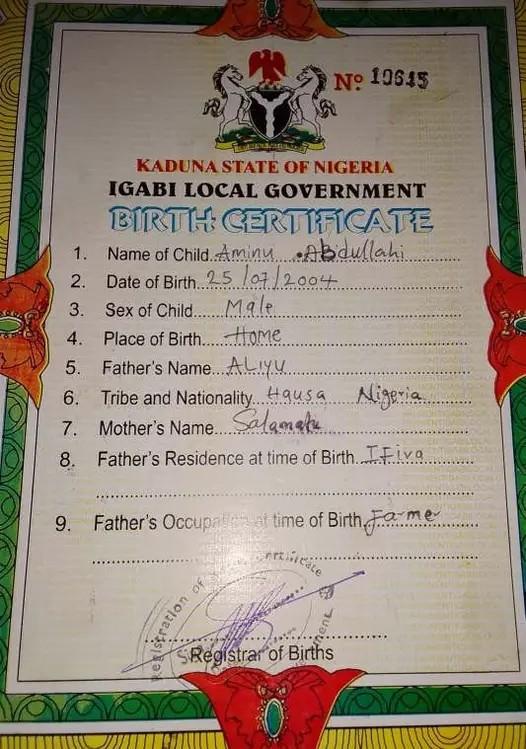 Nº 10645
KADUNA STATE OF NIGERIA
IGABI LOCAL GOVERNMENT
BIRTH CERTIFICATE
1. Name of Child Aminu Abdullahi
2. Date of Birth 25/07/2004
3. Sex of Child Male
4. Place of Birth Home
5. Father's Name ALIYU
6. Tribe and Nationality Hausa Nigeria
7. Mother's Name Salamatu
8. Father's Residence at time of Birth IFira
9. Father's Occupation at time of Birth Fa-mer
Registration of Certificate
Registrar of Births